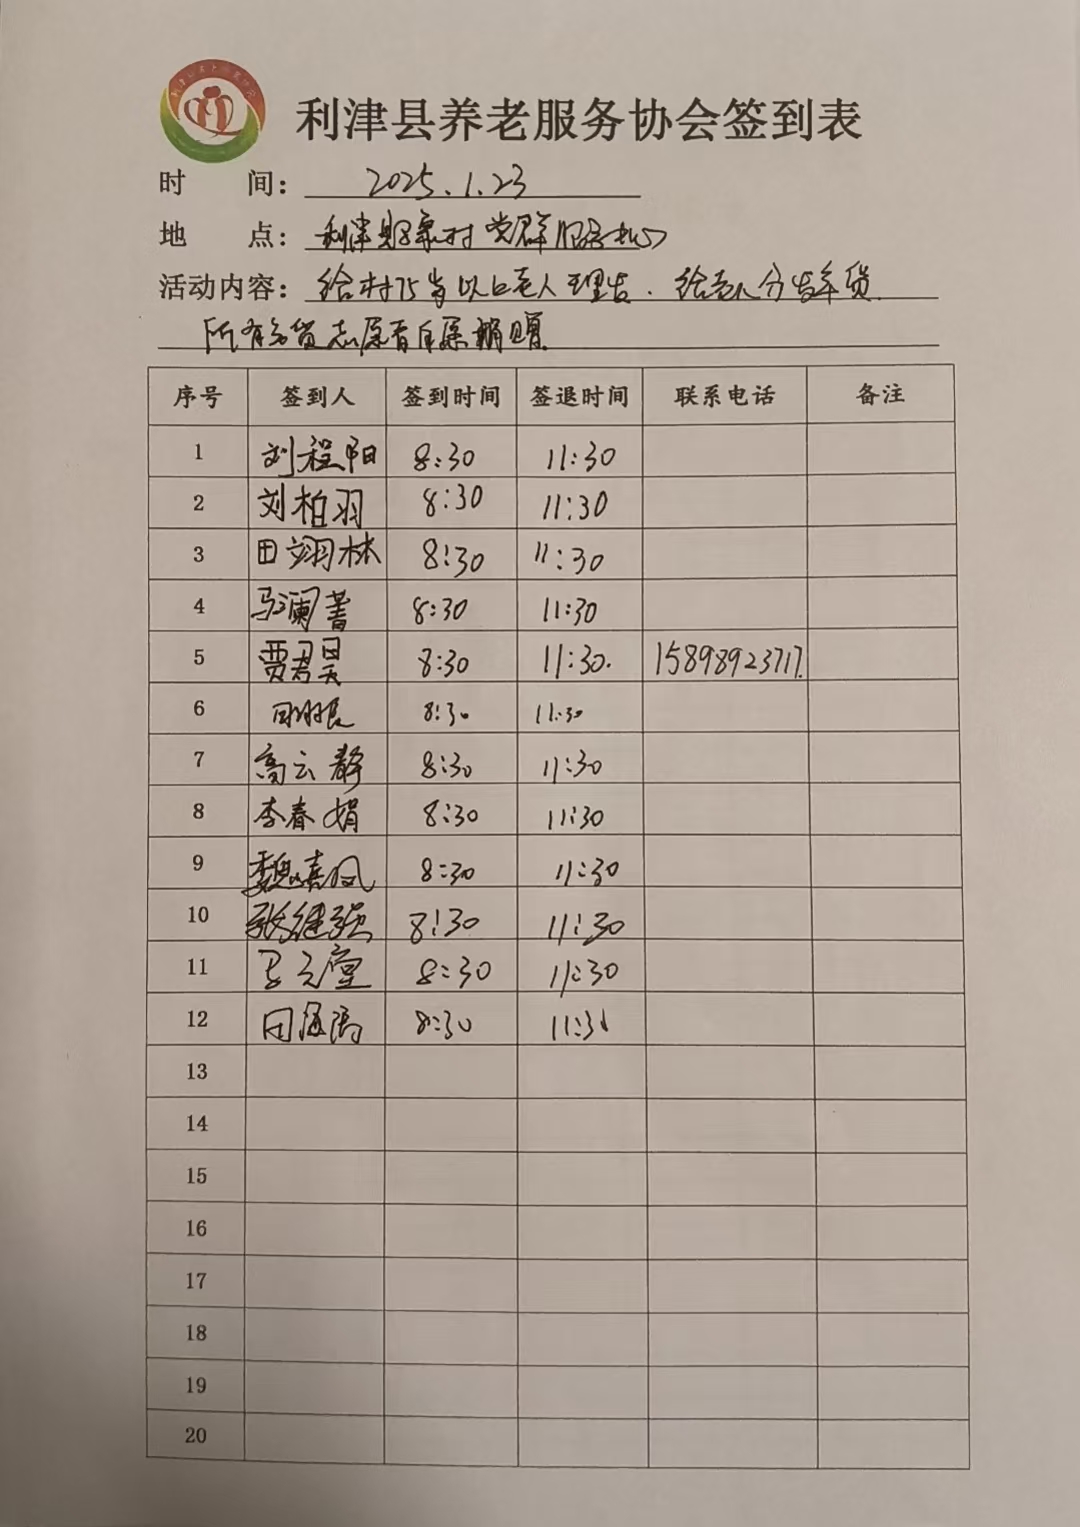 利津县养老服务协会签到表
时 间: 2025.1.23
地 点: 利津 村党群服务中心
活动内容: 给村75岁以上老人理发. 给老人分发年货
所有年货志愿者自愿捐赠
序号 签到人 签到时间 签退时间 联系电话 备注
1 刘程阳 8:30 11:30
2 刘柏羽 8:30 11:30
3 田翊林 8:30 11:30
4 马澜菁 8:30 11:30
5 贾君昊 8:30 11:30. 15898923717.
6 8:30 11:30
7 高云静 8:30 11:30
8 李春娟 8:30 11:30
9 魏 凤 8:30 11:30
10 张继强 8:30 11:30
11 8:30 11:30
12 田 8:30 11:30
13
14
15
16
17
18
19
20